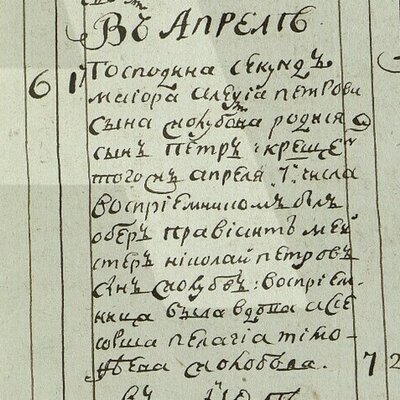 Въ Апрелѣ
6 1 Господина секундъ
маiора алеѯiа петрова
сына скобѣева родился
сынъ петръ крещенъ
того жъ апреля 7 числа
воспрiемникомъ былъ
оберъ правiантъ мей
стеръ нiколай петровъ
сынъ скобѣевъ: воспрiем-
ница была вдова
пелагiа тiмо-
ѳѣева скобѣева. 7 2
въ